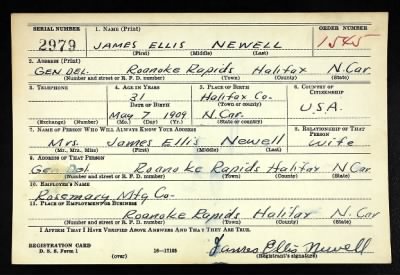 SERIAL NUMBER 1. NAME (Print) ORDER NUMBER
2979 JAMES ELLIS NEWELL 1545
(First) (Middle) (Last)
2. ADDRESS (Print)
GEN DEL. Roanoke Rapids Halifax N. Car
(Number and street or R. F. D. number) (Town) (County) (State)
3. TELEPHONE 4. AGE IN YEARS 5. PLACE OF BIRTH 6. COUNTRY OF CITIZENSHIP
31 Halifax Co.
DATE OF BIRTH (Town or county) U.S.A.
May 7 1909 N. Car.
(Exchange) (No.) (Mo.) (Day) (Yr.) (State or country)
7. NAME OF PERSON WHO WILL ALWAYS KNOW YOUR ADDRESS 8. RELATIONSHIP OF THAT PERSON
Mrs. James Ellis Newell Wife
(Mr., Mrs., Miss) (First) (Middle) (Last)
9. ADDRESS OF THAT PERSON
Gen Del. Roanoke Rapids Halifax N Car
(Number and street or R. F. D. number) (Town) (County) (State)
10. EMPLOYER'S NAME
Rosemary Mfg Co.
11. PLACE OF EMPLOYMENT OR BUSINESS
Roanoke Rapids Halifax N. Car
(Number and street or R. F. D. number) (Town) (County) (State)
I AFFIRM THAT I HAVE VERIFIED ABOVE ANSWERS AND THAT THEY ARE TRUE.
REGISTRATION CARD
D. S. S. Form 1 16-17105 James Ellis Newell
(over) (Registrant's signature)